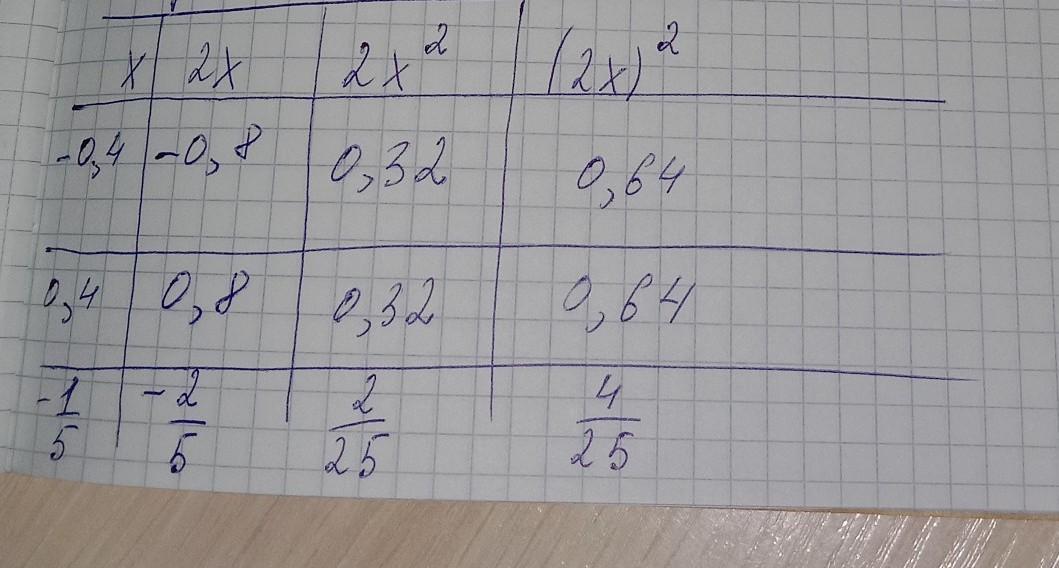 x 2x 2x² (2x)²
-0,4 -0,8 0,32 0,64
0,4 0,8 0,32 0,64
-1/5 -2/5 2/25 4/25